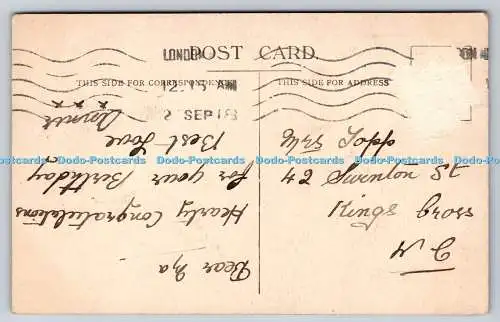 POST CARD.
THIS SIDE FOR CORRESPONDENCE
THIS SIDE FOR ADDRESS
LONDON
12.15 AM
2 SEP 18
Dear Ma
Hearty Congratulations
for your Birthday
Best Love
x x x
Mrs Dodd
42 Swinton St
Kings
Dodo-Postcards Dodo-Postcards Dodo-Postcards Dodo-Postcards Dodo-Postcards Dodo-Postcards